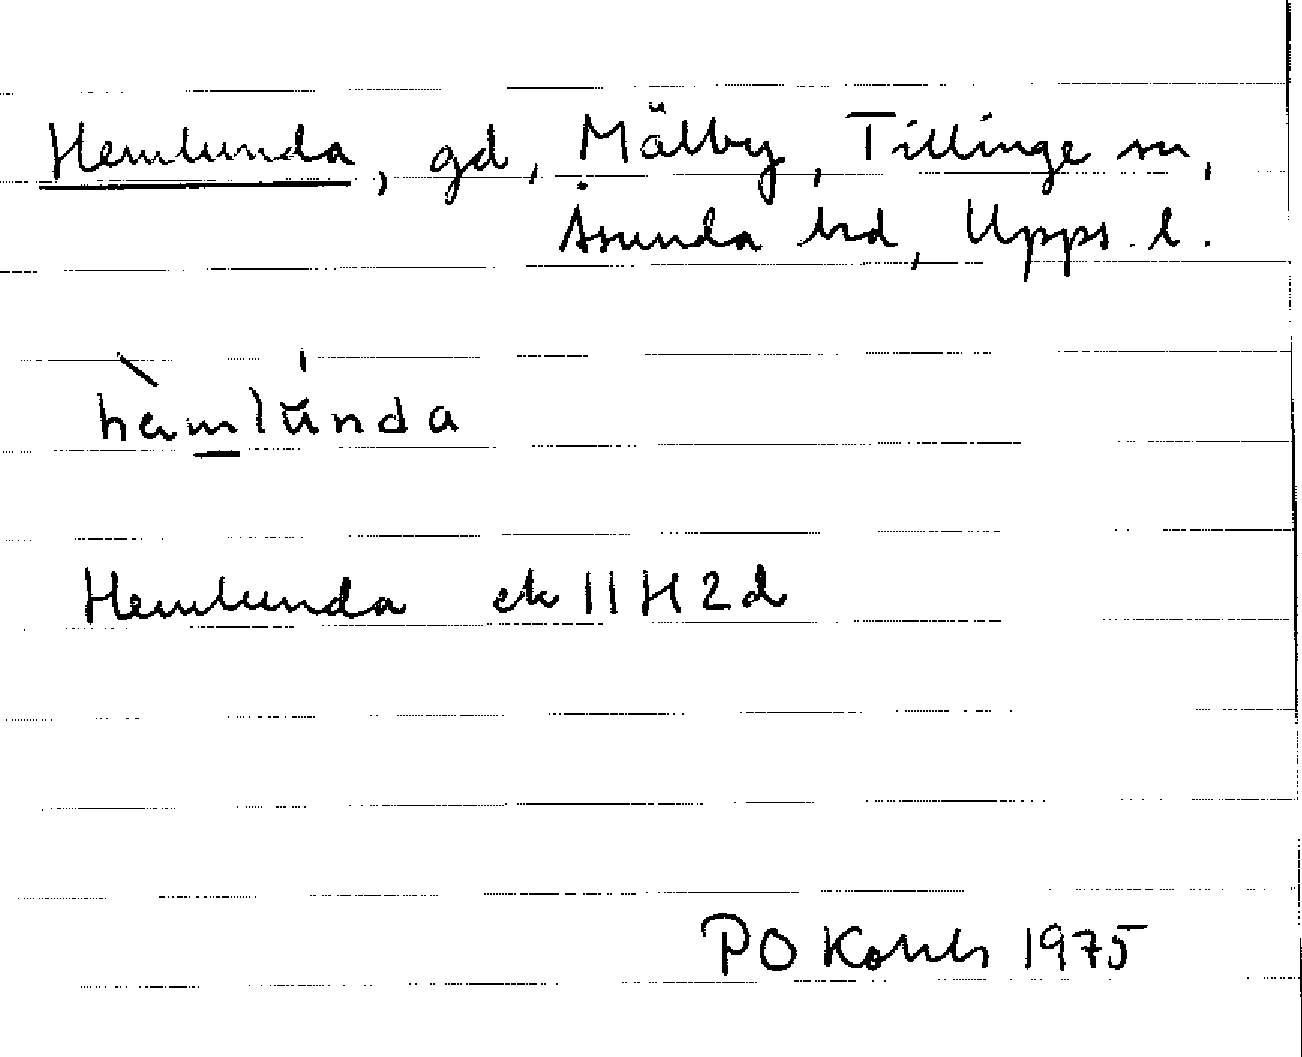 Hemlunda, gd, Mälby, Tillinge sn,
Åsunda hrd, Upps. l.
hàmlúnda
Hemlunda ek 11H2d
PO 1975